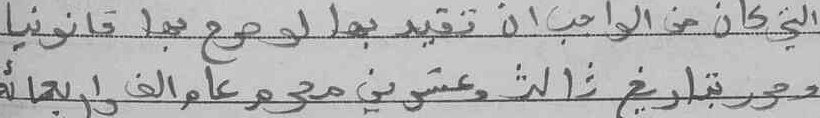 التي كان من الواجب ان تقيد بها لو صرح بها قانونيا
وحرر بتاريخ ثالث وعشرين محرم عام الف واربعمائة